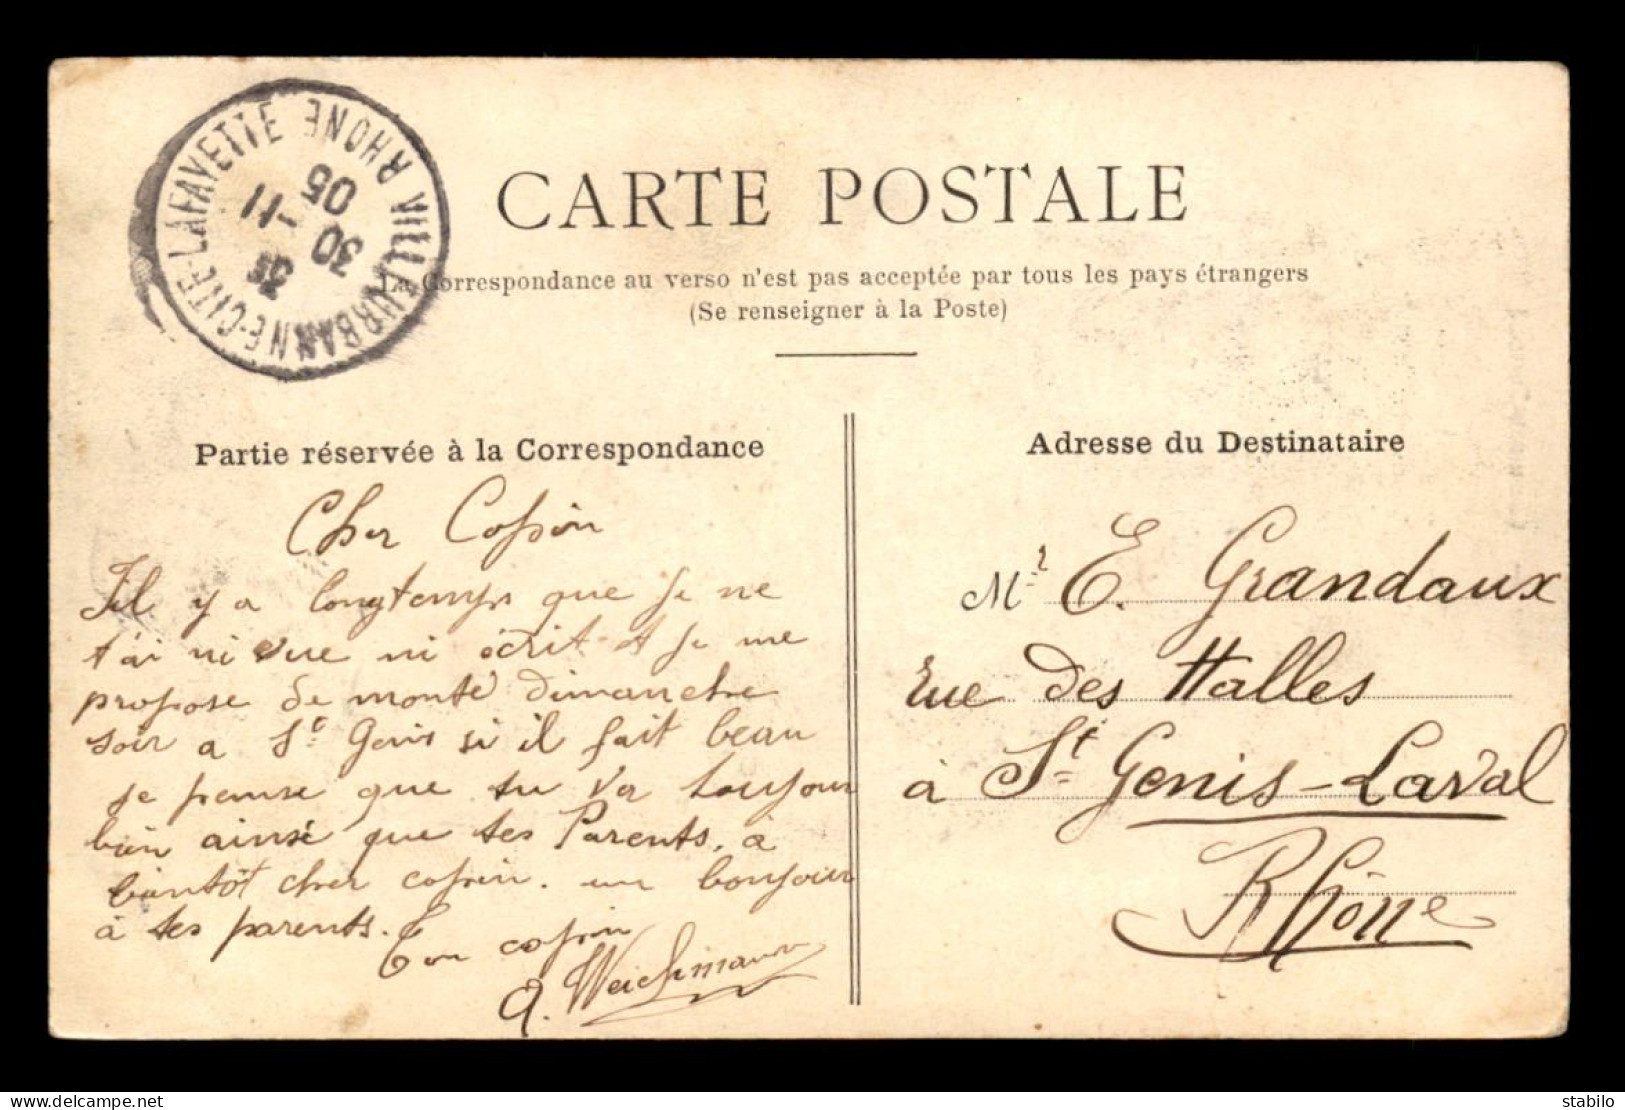 VILLEURBANNE-CITE-LAFAYETTE RHONE
3E
30 -11
05
CARTE POSTALE
La Correspondance au verso n'est pas acceptée par tous les pays étrangers
(Se renseigner à la Poste)
Partie réservée à la Correspondance
Cher Cossin
Il y a longtemps que je ne
t'ai ni vue ni écrit et je me
propose de monté dimanche
soir a St Genis si il fait beau
je pense que tu va toujour
bien ainsé que tes Parents. à
bientôt cher cossin. un bonjour
à tes parents.
Ton cossin
A. Weichmann
Adresse du Destinataire
Mr E. Grandaux
rue des Halles
à St Genis-Laval
Rhône
www.delcampe.net
stabilo